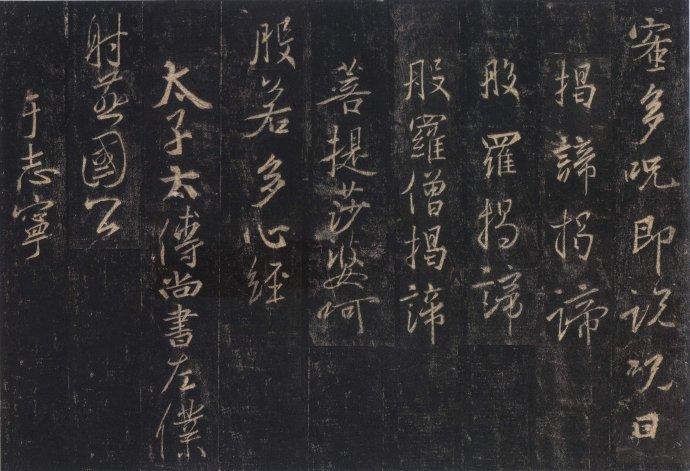 蜜多呪即説呪曰
揭諦揭諦
般羅揭諦
般羅僧揭諦
菩提莎婆呵
般若多心經
太子太傅尚書左僕
射燕國公
于志寧